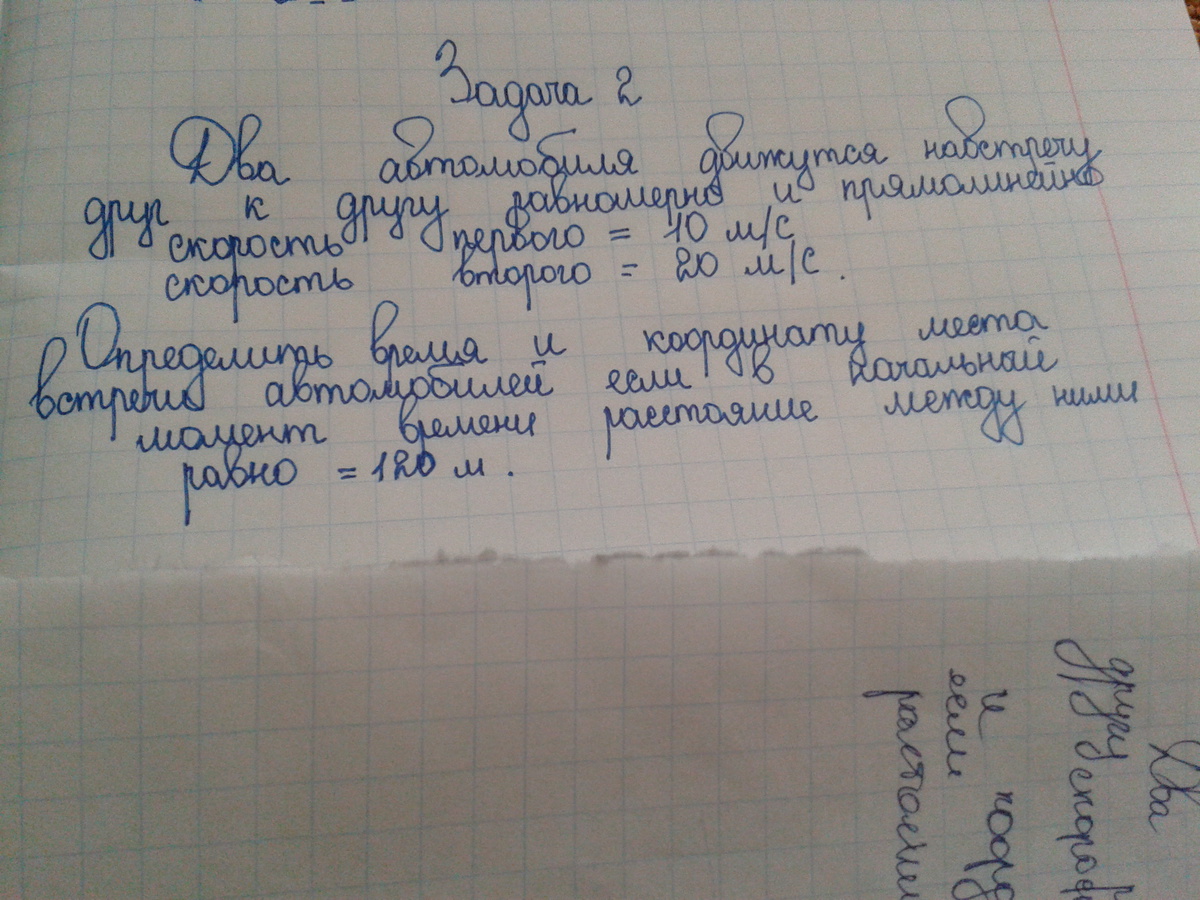 Задача 2
Два автомобиля движутся навстречу
друг к другу равномерно и прямолинейно
скорость первого = 10 м/с
скорость второго = 20 м/с.
Определить время и координату места
встречи автомобилей если в начальный
момент времени расстояние между ними
равно = 120 м.
Два
другу скоро
и коорд
если
расстояни